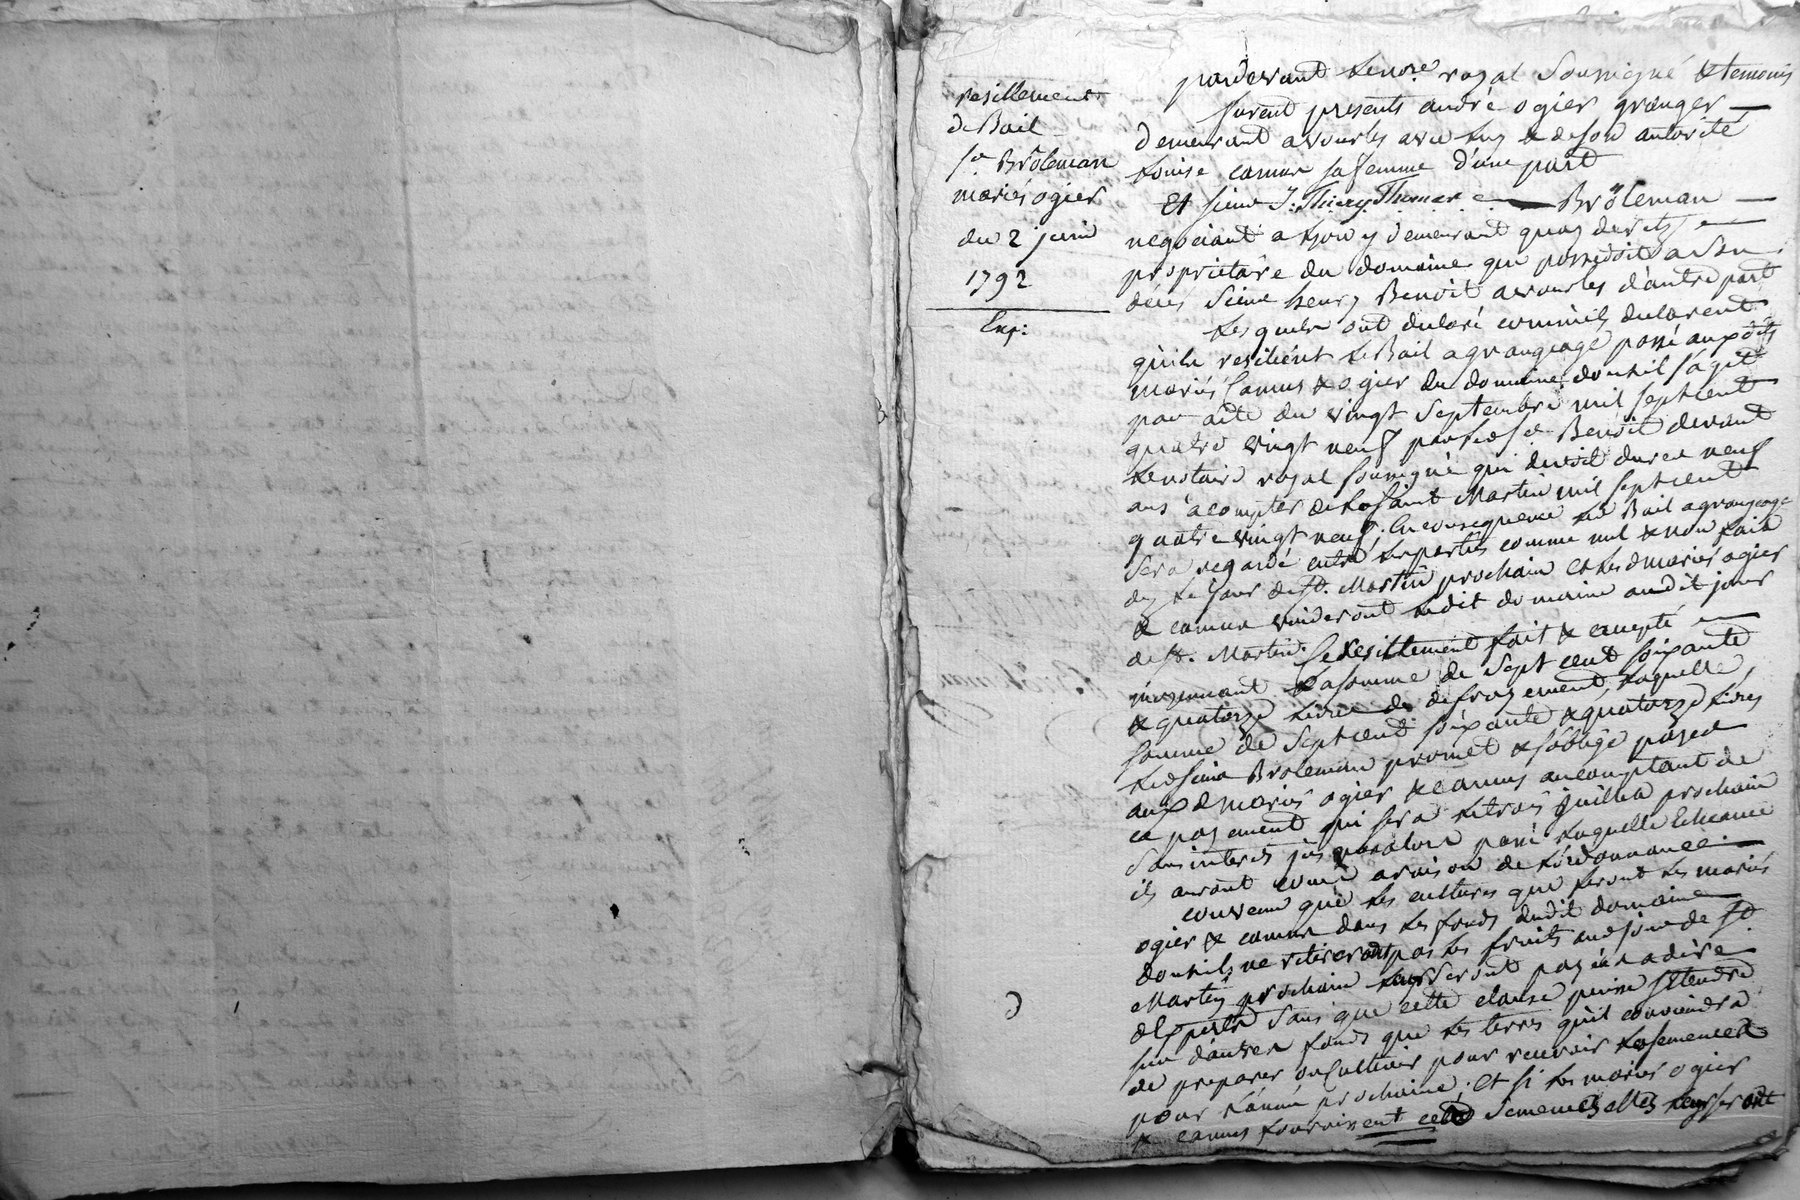 resillement
de Bail
sr Bröleman
mariés ogier
du 2 juin
1792
Exp:
pardevant Le nore royal soussigné & temoins
furent presents andré ogier granger
demeurant a vourles avec luy & de son autorité
Louise camus sa femme d'une part
Et sieur J. Thierry Thomas Bröleman
negociant a Lyon y demeurant quay de retz
proprietaire du domaine que possedoit a son
décès sieur henry Benoit a vourles d'autre part
Lesquels ont declaré comm'ils declarent
qu'ils resilient le Bail a grangeage passé auxdits
mariés Camus & ogier du domaine dont il s'agit
par acte du vingt septembre mil sept cent
quatre vingt neuf par led. sr Benoit devant
Le notaire royal soussigné qui devoit durer neuf
ans a compter de La saint Martin mil sept cent
quatre vingt neuf. En consequence led Bail a grangeage
sera regardé entre Les parties comme nul & non fait
dez Le jour de st. Martin prochain et les d mariés ogier
& camus vuideront Ledit domaine audit jour
de st. Martin. Ce resillement fait & accepté
moyennant La somme de sept cent soixante
& quatorze Livres de defrayement, Laquelle
somme de sept cent soixante & quatorze Livres
Led sieur Broleman promet & s'oblige payer
aux d mariés ogier & camus au comptant de
ce payement qui sera Le trois juillet prochain
sans interets jusqu'alors passé Laquelle Echeance
ils auront cours a raison de L'ordonnance
convenu que Les cultures que feront Les mariés
ogier & camus dans Les fonds dudit domaine
dont ils ne retireront pas Les fruits aud jour de st
Martin prochain Leur seront payés a dire
d'Experts sans que cette clause puisse s'etendre
sur d'autres fonds que Les terres qu'il conviendra
de preparer ou Cultiver pour recevoir La semence
pour L'année prochaine. Et si Les mariés ogier
& camus fournissent cette semence elles Leur seront